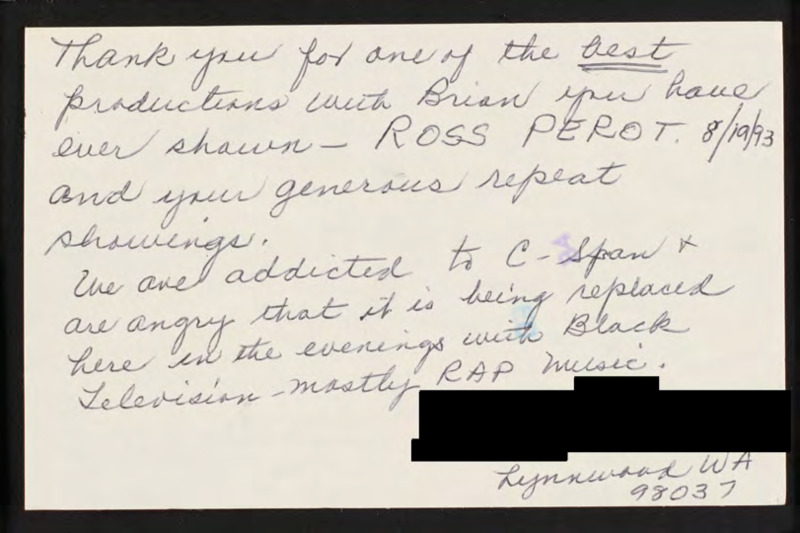 Thank you for one of the best
productions with Brian you have
ever shown — ROSS PEROT. 8/19/93
and your generous repeat
showings.
We are addicted to C-Span +
are angry that it is being replaced
here in the evenings with Black
Television - mostly RAP music.
Lynnwood WA
98037